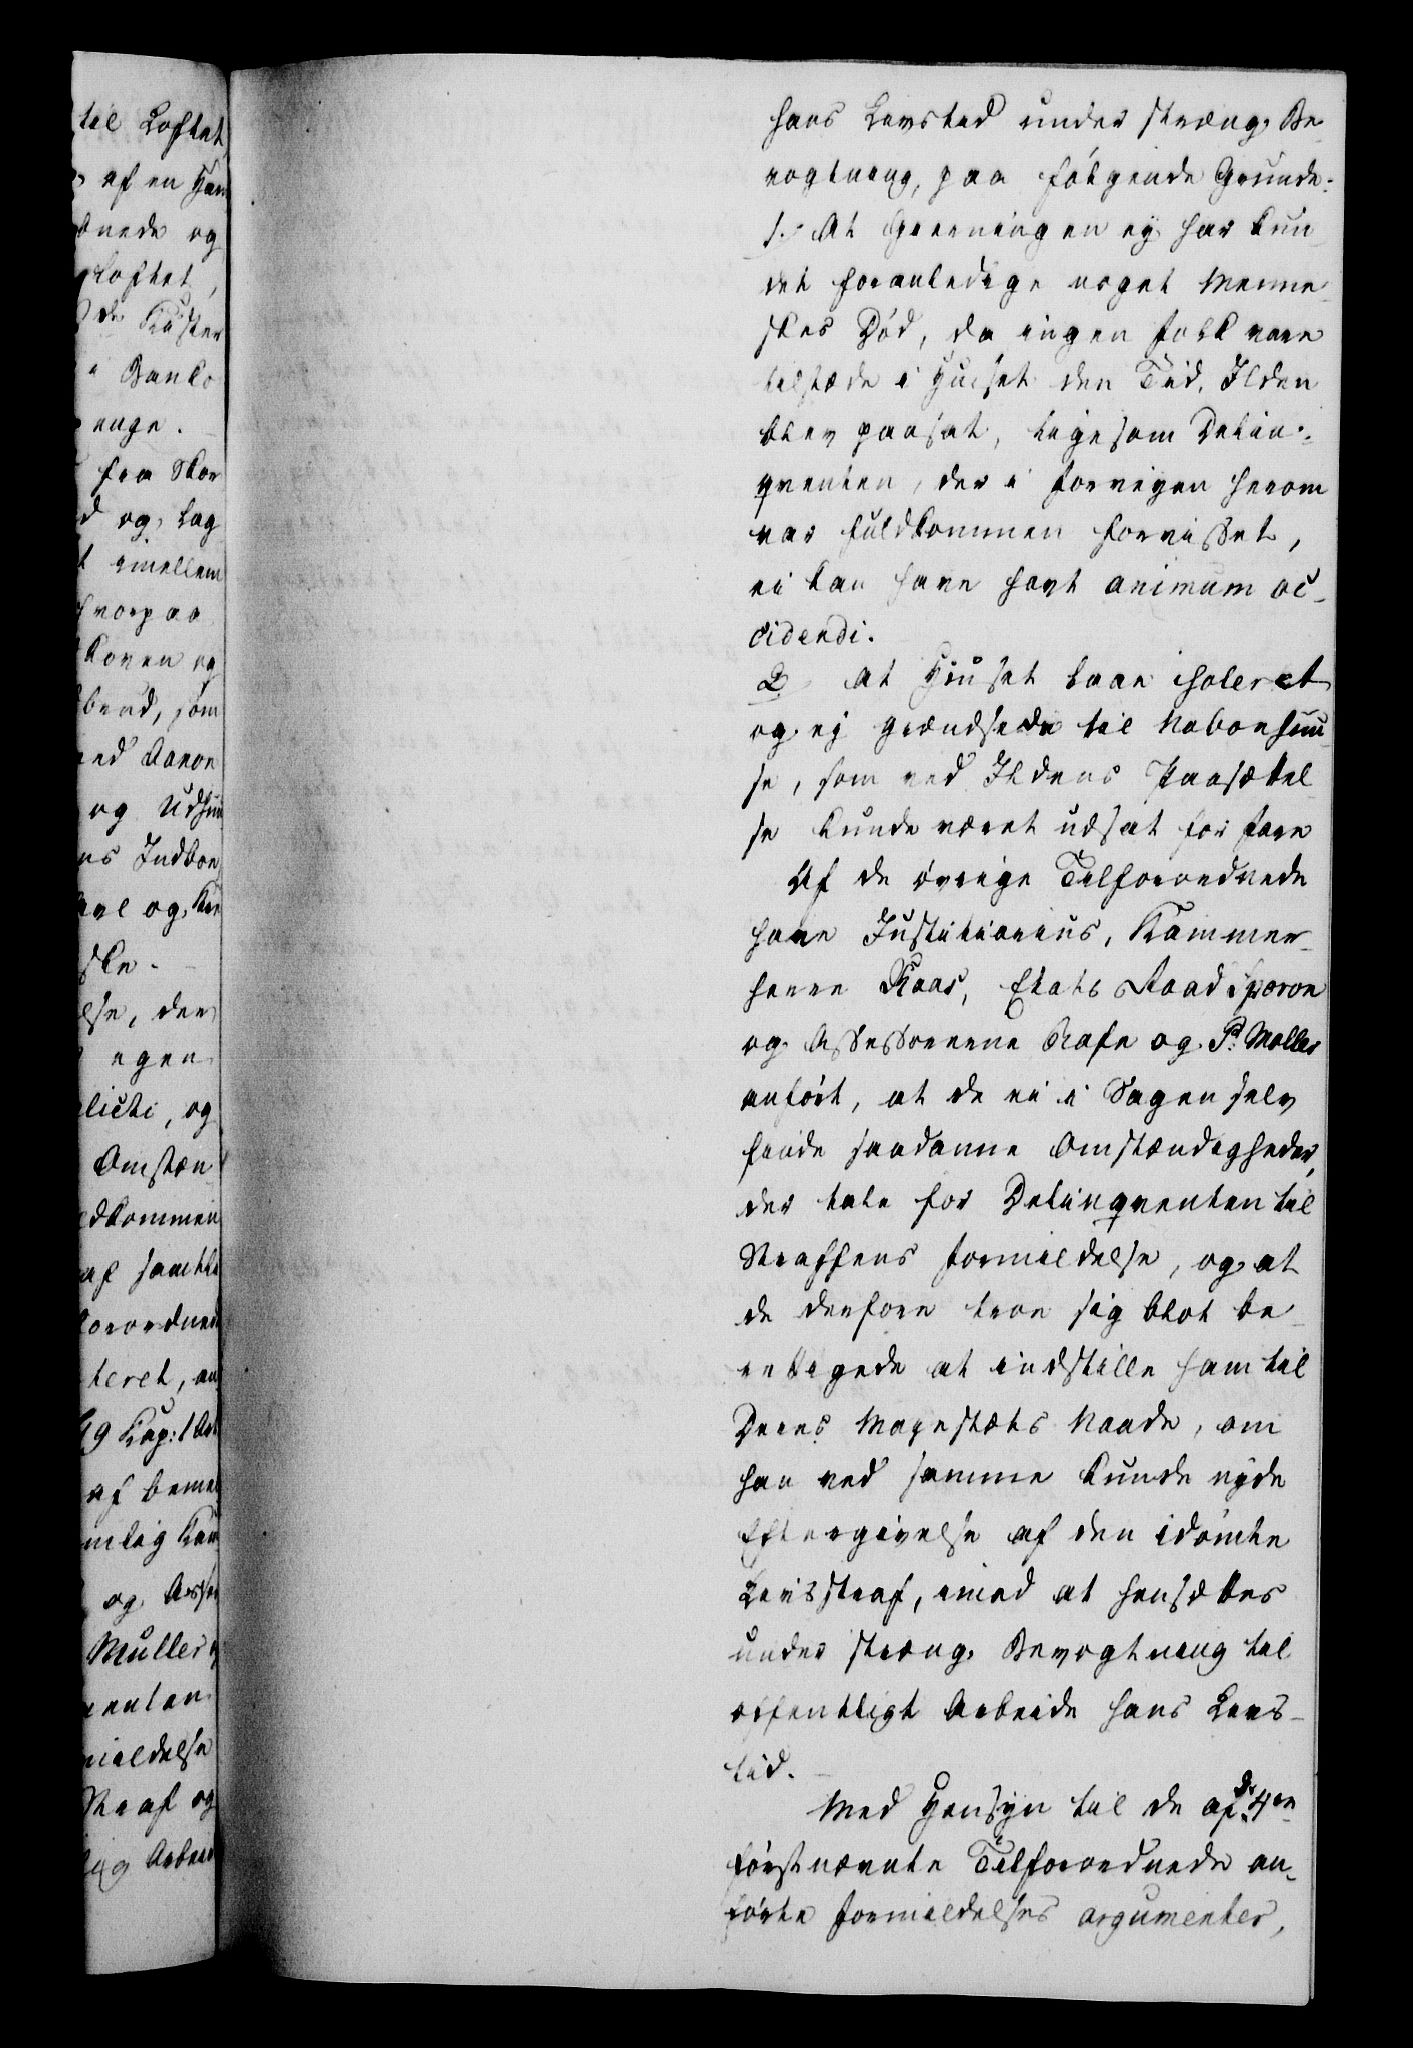 til Loftet
af en Ham
bnede og
Loftet,
de Kister
i Banko
enge.
fra Skor
d og lag
t imellem
hvorpaa
koven og
bend, som
og Udhuu
ns Indboe
avl og
ske.
else, der
egen
licti, og
Omstæn
dkommen
af samtli
forordnede
teret, an
19 Kap: 1 Art
af bemel
mlig Kam
og Asses
Müller
quenten
mildelse
Straf og
lig Arbeid
hans Levstid under stræng Be
vogtning, paa følgende Grunde:
1. At Gierningen ey har kun
det foranledige noget Menne
skes Død, da ingen Folk vare
tilstæde i Huset den Tid, Ilden
blev paasat, ligesom Delin-
qventen, der i Forveyen herom
var fuldkommen forvisset,
ei kan have havt animum oc-
cidendi.
2. at Huuset laae isoleret
og ej grændsede til Naboehuu
se, som ved Ildens Paasættel
se kunde været udsat for Fare
Af de øvrige Tilforordnede
have Justitiarius, Kammer-
herre Kaas, Etats Raad Spæron
og Assessorerne Rafn og P. Møller
anført, at de ei i Sagen selv
finde saadanne Omstændigheder,
der tale for Delinqventen til
Straffens Formildelse, og at
de derfore troe sig blot be
rettigede at indstille ham til
Deres Majestæts Naade, om
han ved samme kunde nyde
Eftergivelse af den idømte
Livsstraf, imod at hensættes
under stræng Bevogtning til
offentligt Arbeide hans Livs-
tid.
Med Hensyn til de af d: 4re
førstnævnte Tilforordnede an-
førte Formildelses argumenter,